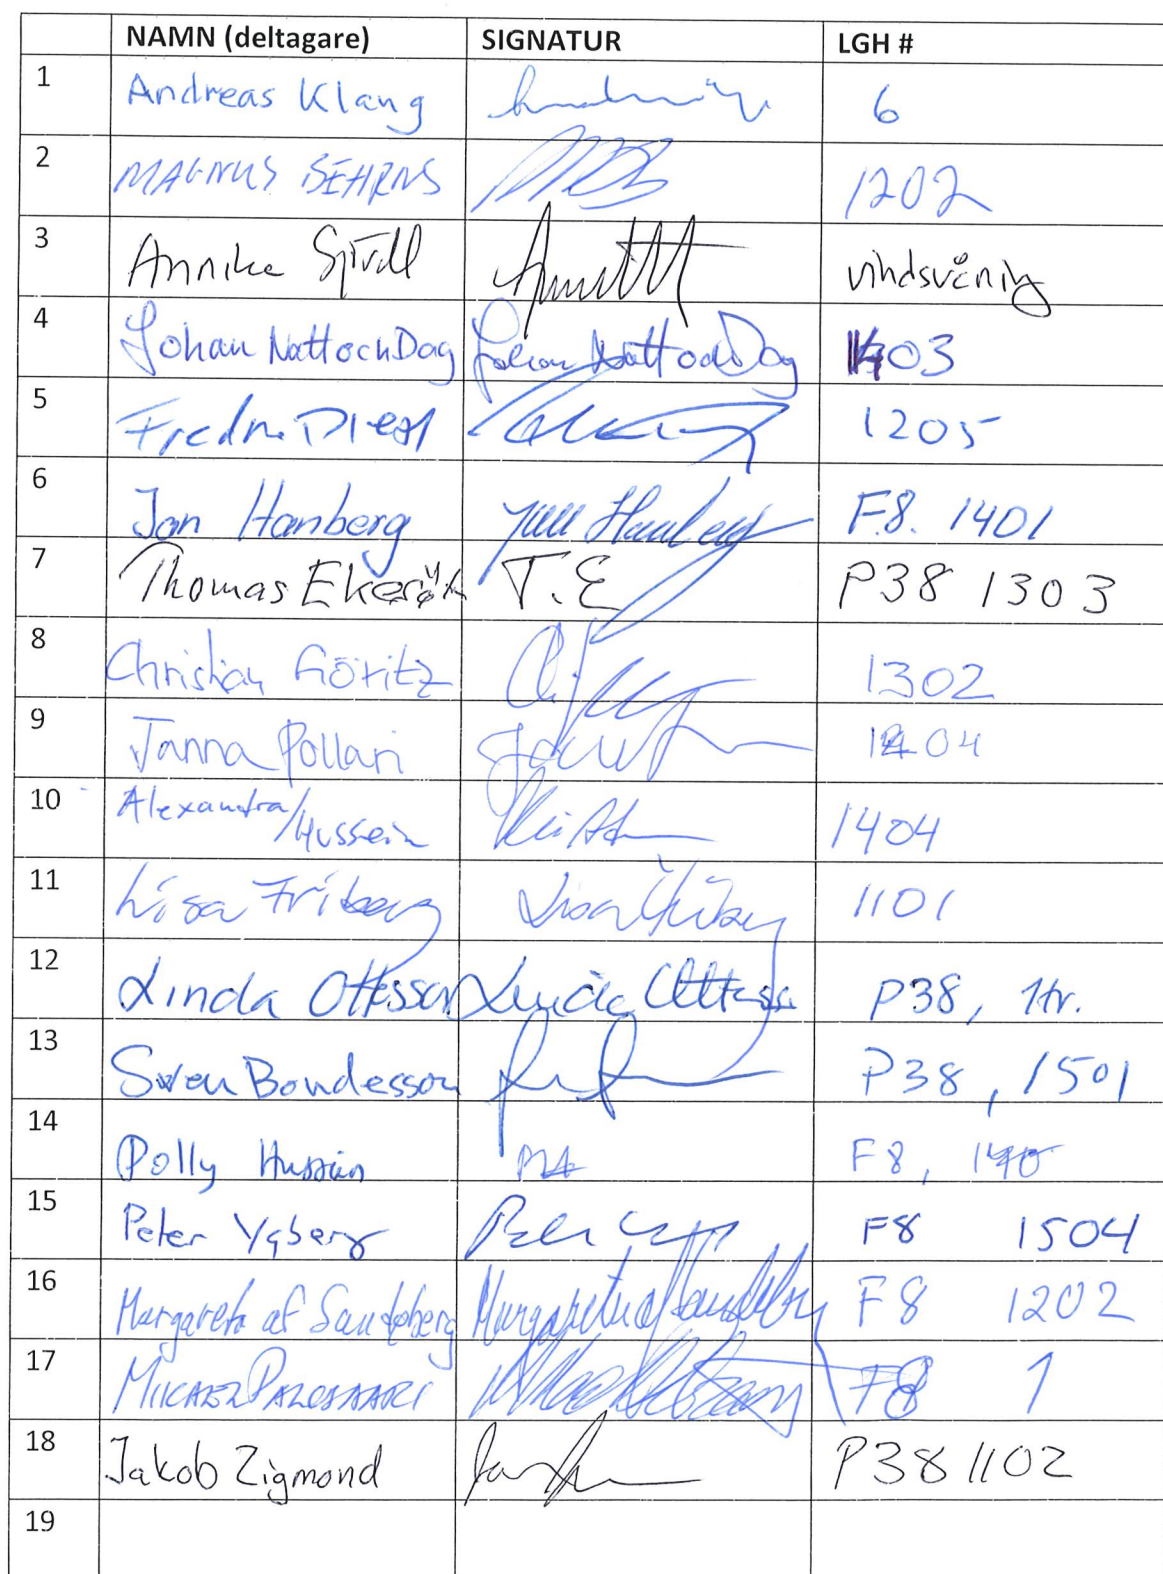 NAMN (deltagare) SIGNATUR LGH #
1 Andreas Klang 6
2 MAGNUS BEHRNS 1202
3 Annika vindsvåning
4 Johan NattochDag Johan NattochDag 03
5 1205
6 Jan Hamberg F8. 1401
7 Thomas T.E P38 1303
8 Christian Göritz 1302
9 Janna Pollari 04
10 Alexandra/Hussein 1404
11 Lisa Friberg Lisa Friberg 1101
12 Linda Ottesson Linda Ottesson P38, 1tr.
13 Sven Bondesson P38, 1501
14 Polly Hussein F8,
15 Peter Ygberg F8 1504
16 Margareta af Sandeberg Margareta af Sandeberg F8 1202
17 MIKAEL PALOSAARI F8 1
18 Jakob Zigmond P38 1102
19